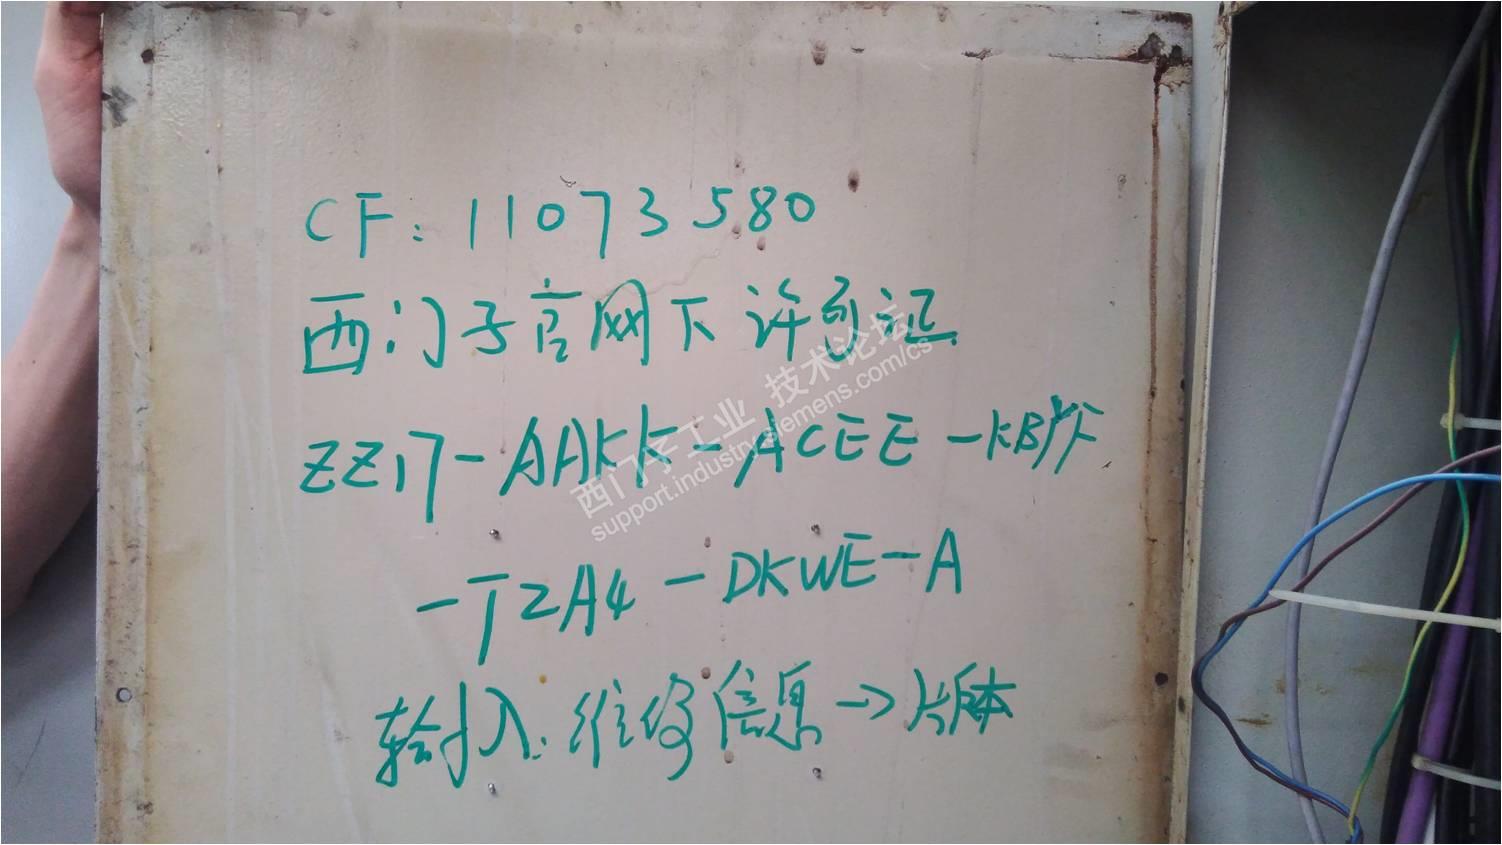 CF: 11073580
西门子官网下许可证
ZZ17-AAKK-ACEE-
-TZA4-DKWE-A
输入: 维修信息→版本
西门子工业 技术论坛
support.industry.siemens.com/cs